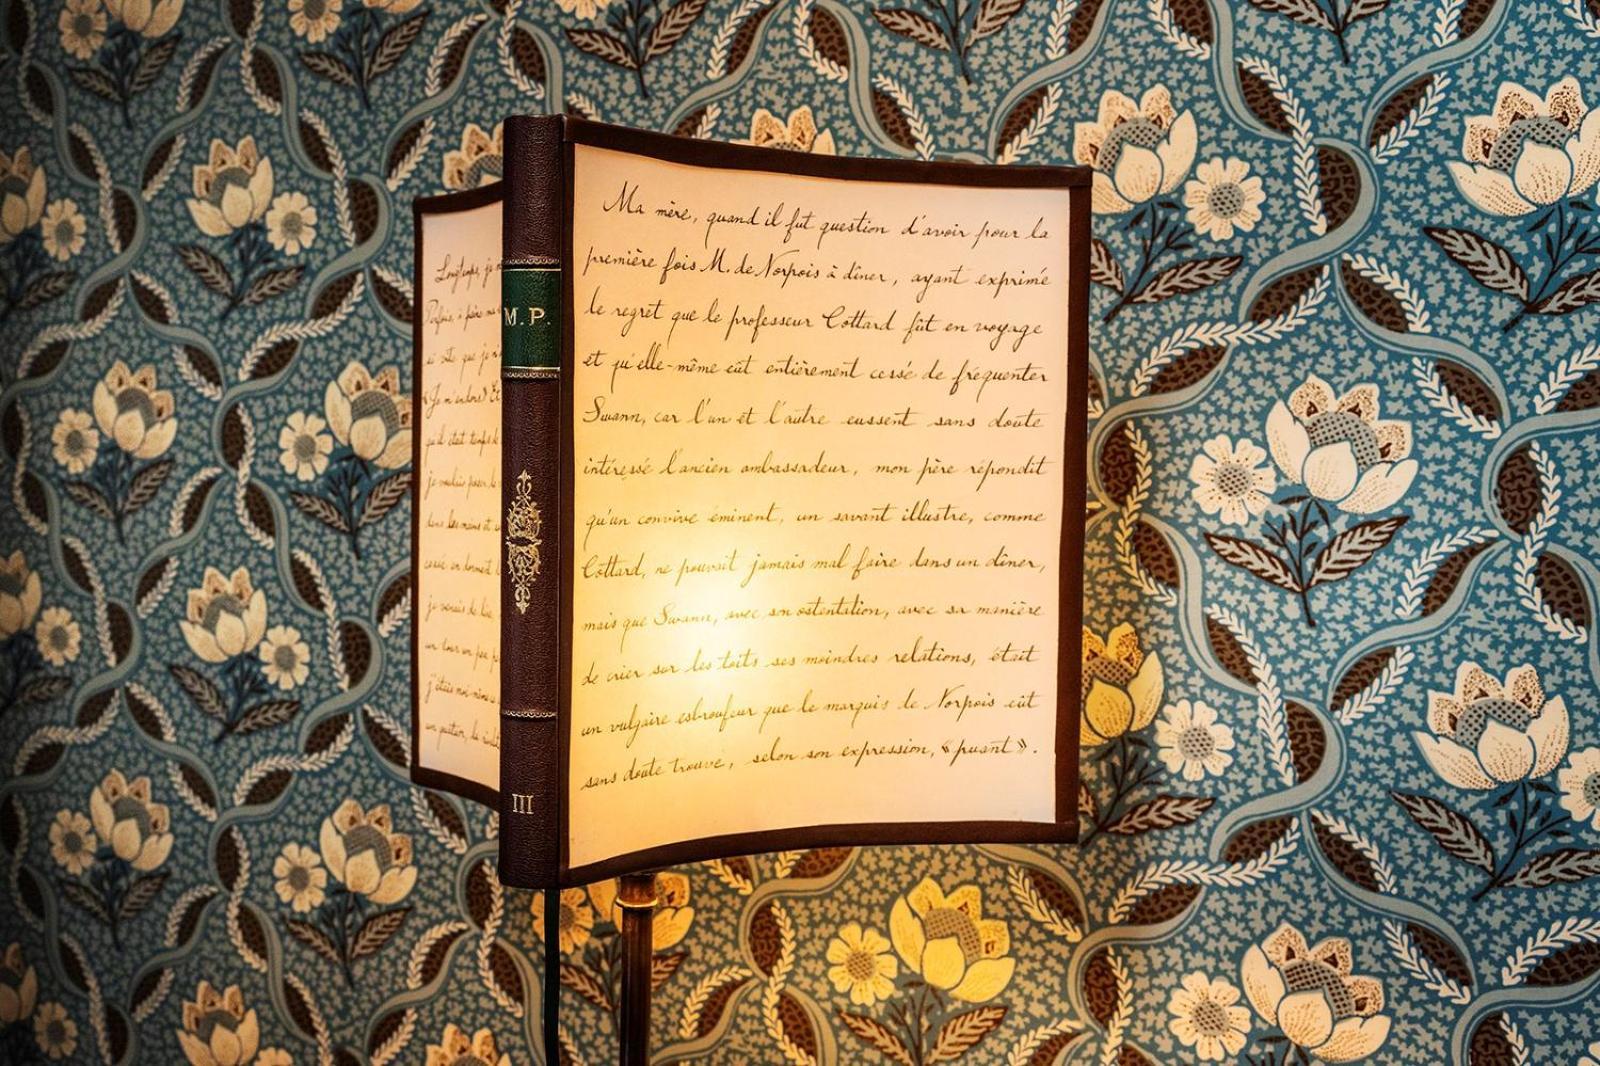 Longtemps, je
Parfois, à peine ma
si vite que je n'a
« Je m'endors » Et
qu'il était temps de
je voulais poser le
dans les mains et
cessé en dormant
je venais de lire,
un tour un peu p
j'étais moi-même
un quatuor, la rival
M.P.
III
Ma mère, quand il fut question d'avoir pour la
première fois M. de Norpois à dîner, ayant exprimé
le regret que le professeur Cottard fût en voyage
et qu'elle-même eût entièrement cesse de fréquenter
Swann, car l'un et l'autre eussent sans doute
intéressé l'ancien ambassadeur, mon père répondit
qu'un convive éminent, un savant illustre, comme
Cottard, ne pouvait jamais mal faire dans un dîner,
mais que Swann, avec son ostentation, avec sa manière
de crier sur les toits ses moindres relations, était
un vulgaire esbroufeur que le marquis de Norpois eût
sans doute trouvé, selon son expression, « puant ».